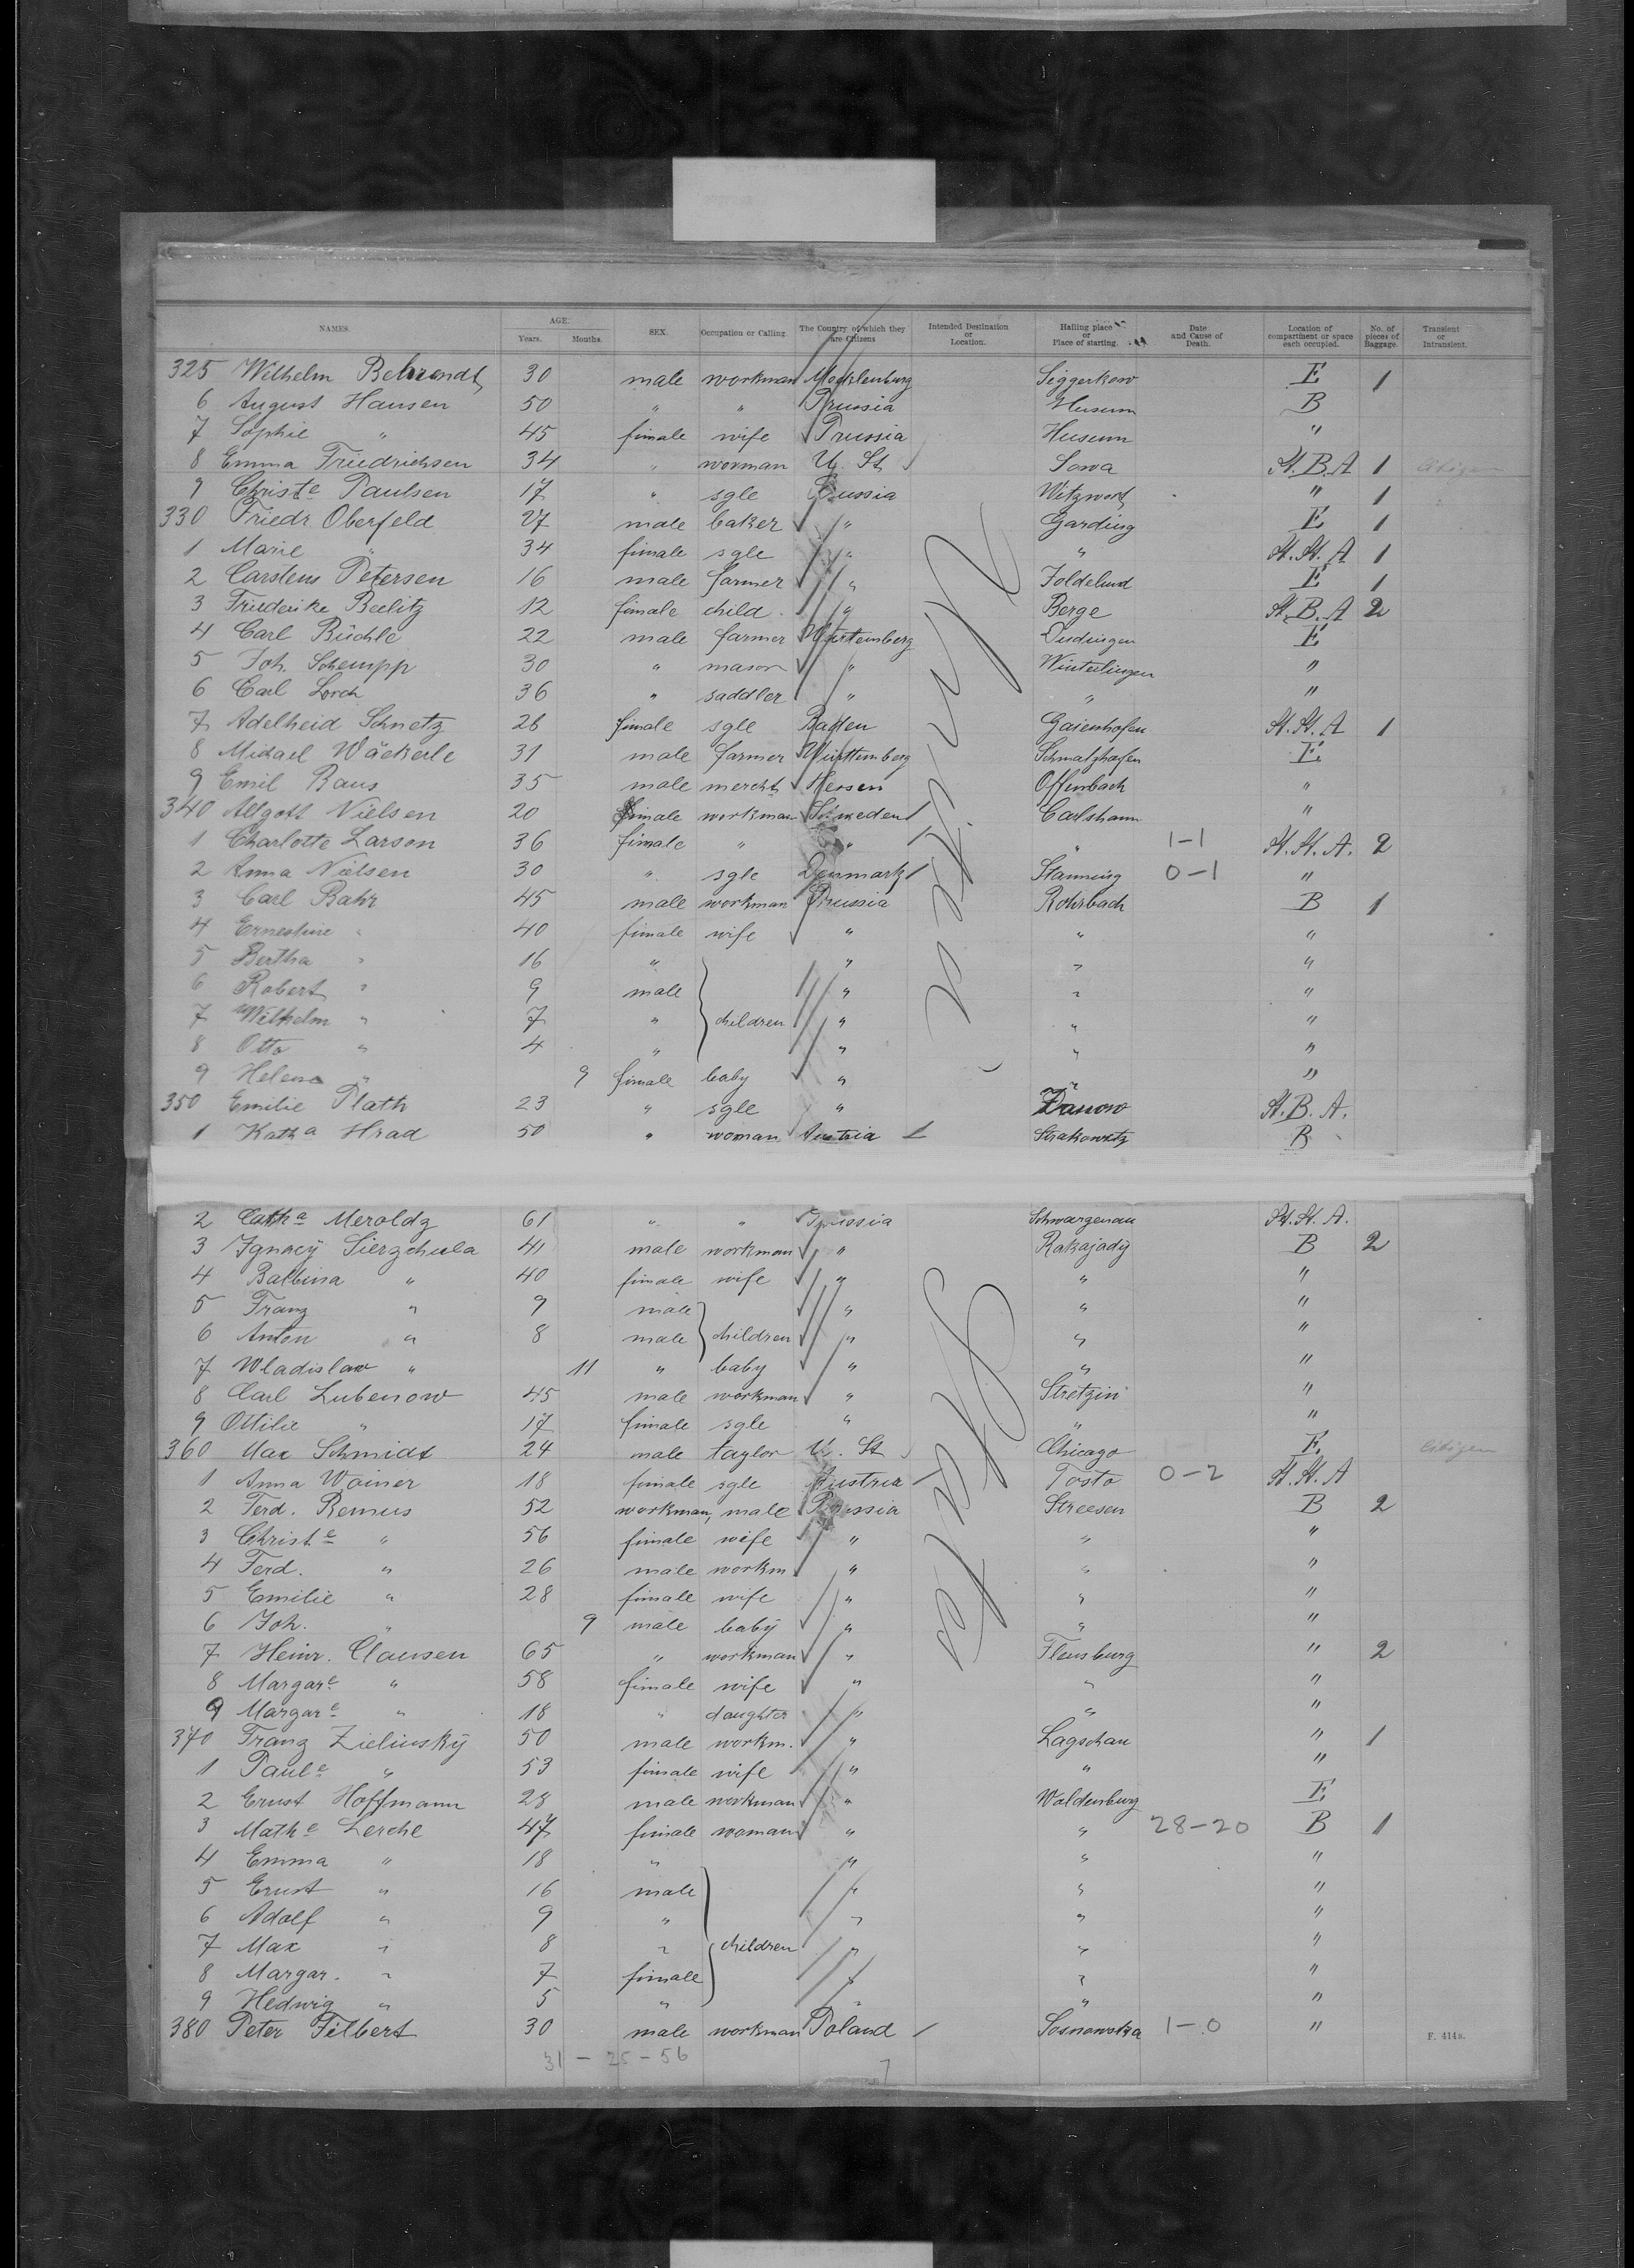 NAMES. AGE. Years. Months. SEX. Occupation or Calling. The Country of which they are Citizens Intended Destination or Location. Hailing place or Place of starting. Date and Cause of Death. Location of compartment or space each occupied. No. of pieces of Baggage. Transient or Intransient.
325 Wilhelm Behrendt 30 male workman Mecklenburg Siggerkow E 1
6 August Hansen 50 " " Prussia Husum B
7 Sophie " 45 female wife Prussia Husum "
8 Emma Friedrichsen 34 " woman U. St Iowa H.B.A 1 Citizen
9 Christe Paulsen 17 " sgle Prussia Witzwort " 1
330 Friedr Oberfeld 27 male baker " Garding E 1
1 Marie " 34 female sgle " " H.H.A 1
2 Carstens Petersen 16 male farmer " Joldelund E 1
3 Friederike Beelitz 12 female child " Berge H.B.A 2
4 Carl Büchle 22 male farmer Würtemberg E
5 Joh. Schempp 30 " mason " Winterlingen "
6 Carl Lorch 36 " saddler " " "
7 Adelheid Schnetz 26 female sgle Baden Gaienhofen H.H.A 1
8 Michael Wäckerle 31 male farmer Württemberg Schmalzhafen E
9 Emil Raus 35 male mercht Hessen Offenbach "
340 Allgott Nielsen 20 male workman Sweden Carlshamn "
1 Charlotte Larson 36 female " " " 1-1 H.H.A. 2
2 Anna Nielsen 30 " sgle Denmark Stauning 0-1 "
3 Carl Bahr 45 male workman Prussia Rohrbach B 1
4 Ernestine " 40 female wife " " "
5 Bertha " 16 " " " "
6 Robert " 9 male " " "
7 Wilhelm " 7 " children " " "
8 Otto " 4 " " " "
9 Helena " 9 female baby " " "
350 Emilie Plath 23 " sgle " Zanow H.B.A.
1 Katha Hrad 50 " woman Austria Strakowitz B
2 Catha Meroldz 61 " " Prussia Schwarzenau H.H.A.
3 Ignacÿ Sierzchula 41 male workman " Rakajadÿ B 2
4 Balbina " 40 female wife " " "
5 Franz " 9 male " " "
6 Anton " 8 male children " " "
7 Wladislaw " 11 " baby " " "
8 Carl Lubenow 45 male workman " Stretzin "
9 Ottilie " 17 female sgle " " "
360 Max Schmidt 24 male taylor U. St Chicago E. Citizen
1 Anna Wainer 18 female sgle Austria Tosto 0-2 H.H.A
2 Ferd. Remus 52 workman, male Prussia Streesen B 2
3 Christe " 56 female wife " " "
4 Ferd. " 26 male workm " " "
5 Emilie " 28 female wife " " "
6 Joh. " 9 male baby " " "
7 Heinr. Clausen 65 " workman " Flensburg " 2
8 Margare " 58 female wife " " "
9 Margare " 18 " daughter " " "
370 Franz Zielinskÿ 50 male workm. " Lagschau " 1
1 Paule " 53 female wife " " "
2 Ernst Hoffmann 28 male workman " Waldenburg E
3 Mathe Lerche 47 female woman " " 28-20 B 1
4 Emma " 18 " " " "
5 Ernst " 16 male " " "
6 Adolf " 9 " " " "
7 Max " 8 " children " " "
8 Margar. " 7 female " " "
9 Hedwig " 5 " " " "
380 Peter Filbert 30 male workman Poland Sosnowska 1-0 "
31-25-56
F. 414a.